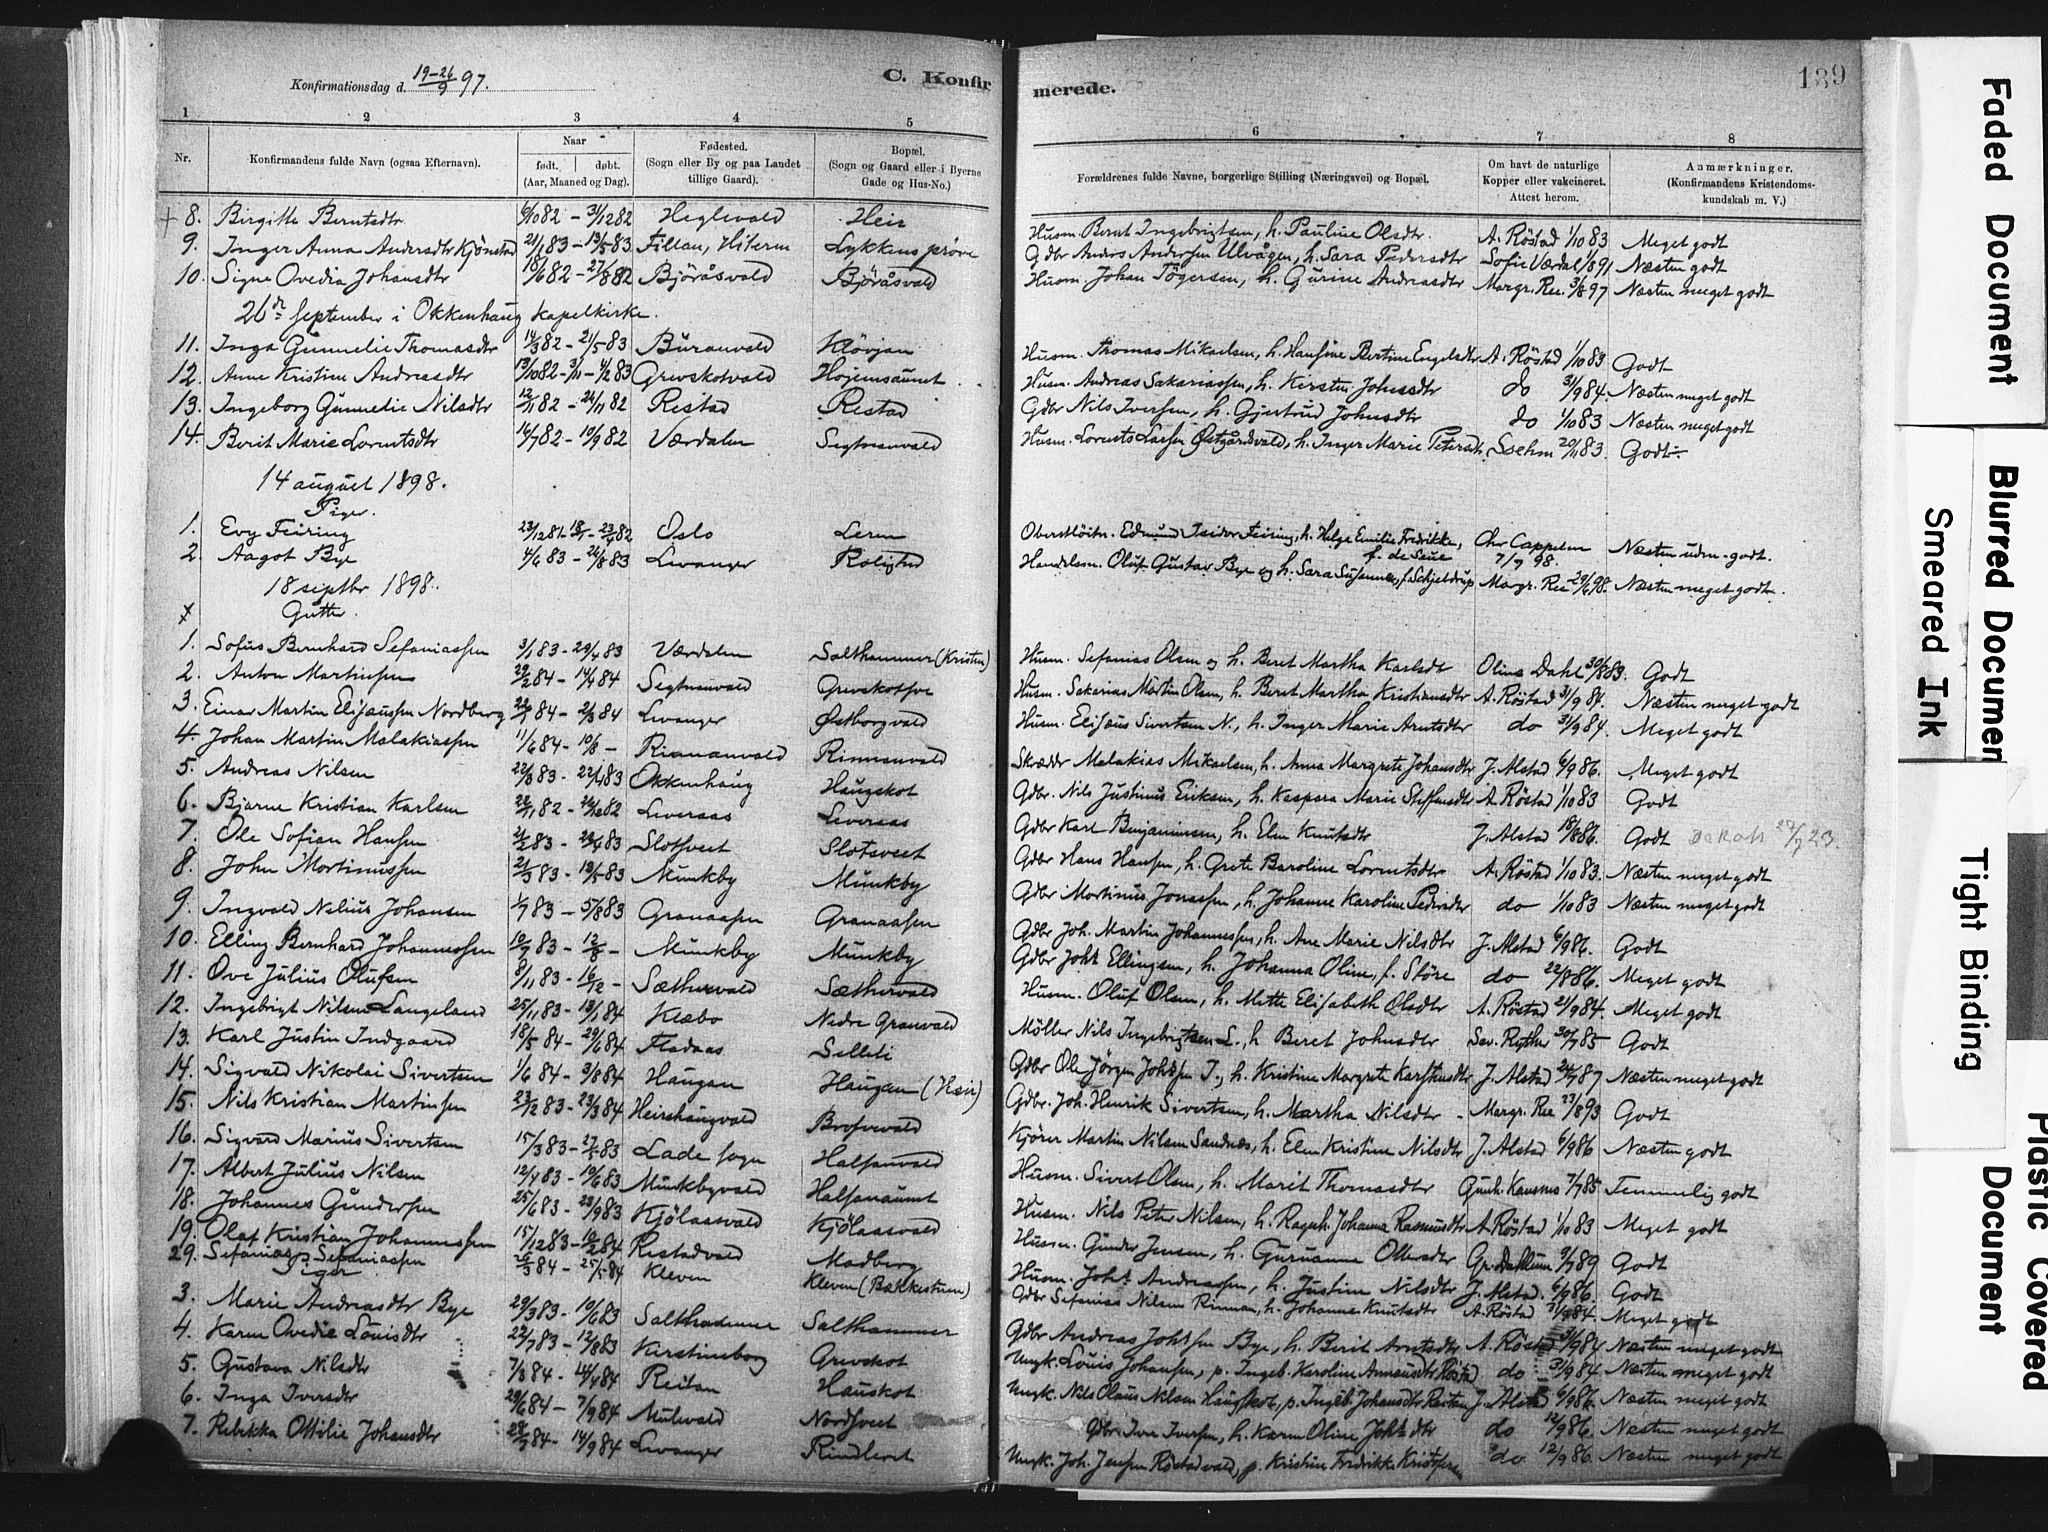 Konfirmationsdag d. 19–26/9 97.
C. Konfir
merede.
189
1 2 3 4 5 6 7 8
Nr.
Konfirmandens fulde Navn (ogsaa Efternavn).
Naar
født. døbt.
(Aar, Maaned og Dag).
Fødested.
(Sogn eller By og paa Landet
tillige Gaard).
Bopæl.
(Sogn og Gaard eller i Byerne
Gade og Hus-No.)
Forældrenes fulde Navne, borgerlige Stilling (Næringsvei) og Bopæl.
Om havt de naturlige
Kopper eller vakcineret.
Attest herom.
Anmærkninger.
(Konfirmandens Kristendoms-
kundskab m. V.)
+ 8. Birgitte Berntsdtr 6/10 82 – 31/12 82 Heglevald Heir Husm. Bernt Ingebrigtsen, h. Pauline Olsdtr. A. Röstad 1/10 83 Meget godt
9. Inger Anna Andersdtr Kjönstad 21/1 83 – 13/5 83 Fillan, Hiteren Lykkensprøve Gdbr Anders Andersen Ulvågen, h. Sara Pedersdtr Sofie Værdal 1/8 91 Næsten godt
10. Signe Ovedia Johansdtr 18/6 82 – 27/8 82 Björåsvald Björåsvald Husm. Johan Tögersen, h. Gurine Andreasdtr Margr. Ree 3/8 97 Næsten meget godt
26de September i Okkenhaug kapelkirke.
11. Inga Gunnelie Thomasdtr 14/3 82 – 21/5 83 Buranvald Klövjan Husm. Thomas Mikaelsen, h. Hansine Bertine Engelsdtr A. Röstad 1/10 83 Godt
12. Anne Kristine Andreasdtr 13/10 82 – 3/11 – 4/2 83 Grevskotvald Hojemsaunet Husm. Andreas Sakariassen, h. Kirsten Johnsdtr do 31/9 84. Næsten meget godt
13. Ingeborg Gunnedie Nilsdtr 12/11 82 – 24/11 82 Restad Restad Gdbr Nils Iversen, h. Gjertrud Johnsdtr do 1/10 83 Næsten meget godt
14. Berit Marie Lorntsdtr 16/7 82 – 10/9 82 Værdalen Segtnanvald Husm. Lornts Larsen Østgårdsvald, h. Inger Marie Petersdtr Soehm 20/11 83. Godt ÷
14 august 1898.
Piger.
1. Evy Feiring 23/12 81 – 18/1 – 23/4 82 Oslo Leren Oberstlöitn. Edmund Isidor Feiring, h. Helga Emilie Fredrikke, f. de Seue Chr Cappelen 7/7 98. Næsten uden-godt.
2. Aagot Bye 4/6 83 – 26/8 83 Levanger Rolighed Handelsm. Oluf Gustav Bye og h. Sara Susanna, f. Schjelderup Margr. Ree 29/6 98. Næsten meget godt.
18 septbr 1898.
x Gutter.
1. Sofus Bernhard Sefaniassen 3/1 83 – 29/4 83 Værdalen Salthammer (Kristen) Husm. Sefanias Olsen og h. Beret Martha Karlsdtr Oline Dahl 30/8 83. Godt
2. Anton Martinsen 29/2 84 – 14/4 84 Segtnanvald Grevskotsve Husm. Sakarias Martin Olsen, h. Beret Martha Kristiansdtr A. Röstad 31/9 84. Næsten meget godt
3. Einar Martin Elisæussen Nordberg 22/1 84 – 2/3 84 Levanger Østborgvald Husm. Elisæus Sivertsen N., h. Inger Marie Arntsdtr do 31/9 84. Meget godt
4. Johan Martin Malakiassen 11/6 84 – 10/8 – Rinnanvald Rinnanvald Skrædder Malakias Mikaelsen, h. Anna Margrete Johansdtr J. Alstad 6/9 86. Meget godt
5. Andreas Nilsen 22/3 83 – 22/4 83 Okkenhaug Haugskot Gdbr. Nils Justinus Eriksen, h. Kaspara Marie Steffensdtr A. Röstad 1/10 83 Godt
6. Bjarne Kristian Karlsen 22/11 82 – 26/12 82 Leveraas Leveraas Gdbr Karl Benjaminsen, h. Elen Knutsdtr J. Alstad 18/8 86. Godt 27/7 23.
7. Ole Sofian Hansen 2/2 83 – 29/4 83 Slotsveet Slotsveet Gdbr Hans Hansen, h. Grete Baroline Lorntsdtr A. Röstad 1/10 83. Næsten meget godt
8. John Mortinussen 21/3 83 – 13/5 83 Munkby Munkby Gdbr Mortinus Jonassen, h. Johanne Karoline Pedersdtr do 1/10 83 Næsten meget godt
9. Ingvald Nelius Johansen 1/7 83 – 5/8 83 Granaasen Granaasen Gdbr Joh. Martin Johannessen, h. Ane Marie Nilsdtr J. Alstad 6/9 86. Godt
10. Elling Bernhard Johannessen 10/7 83 – 12/8 – Munkby Munkby Gdbr Johs Ellingsen, h. Johanna Oline, f. Störe do 22/8 86. Meget godt
11. Ove Julius Olufsen 8/11 83 – 16/12 – Sæthervald Sæthervald Husm. Oluf Olsen, h. Mette Elisabeth Olsdtr A. Röstad 21/9 84. Meget godt
12. Ingebrigt Nilsen Langeland 25/11 83 – 13/1 84 Klæbo Nedre Granvald Möller Nils Ingebrigtsen L., h. Beret Johnsdtr Sev. Rygther 30/7 85 Godt
13. Karl Justin Indgaard 18/5 84 – 29/6 84 Fladaas Selleli Gdbr Ole Jörgen Johssen I., h. Kristine Margrete Karstensdtr J. Alstad 24/7 87 Næsten meget godt
14. Sigvald Nikolai Sivertsen 1/6 84 – 3/8 84 Haugan Haugen (Heir) Gdbr. Joh. Henrik Sivertsen, h. Martha Nilsdtr Margr. Ree 23/8 93 Godt
15. Nils Kristian Martinsen 23/12 83 – 23/3 84 Heirshaugvald Brofevald Kjörer Martin Nilsen Sandnæs, h. Elen Kristine Nilsdtr J. Alstad 6/9 86 Næsten godt
16. Sigvard Marius Sivertsen 15/3 83 – 27/5 83 Lade sogn Halsanvald Husm. Sivert Olsen, h. Marit Thomasdtr Gunh. Kausmo 7/7 85 Temmelig godt
17. Albert Julius Nilsen 12/4 83 – 10/6 83 Munkbyvald Halsanaunet Husm. Nils Peter Nilsen, h. Ragnh. Johanna Rasmusdtr A. Röstad 1/10 83 Meget godt
18. Johannes Gundersen 25/6 83 – 23/9 83 Kjölaasvald Kjölaasvald Husm. Gunder Jensen, h. Guruanna Ottersdtr Gr. Dahlum 9/7 89 Godt
19. Olaf Kristian Johannessen 15/12 83 – 10/2 84 Restadvald Madberg Husm. Johs Andreassen, h. Justine Nilsdtr J. Alstad. 6/9 86. Godt
29. Sefanias Sefaniassen 26/3 84 – 25/5 84 Kleven Kleven (Bækkestrøm) Gdbr Sefanias Nilsen Rinnan, h. Johanne Knutsdtr A. Röstad 31/9 84. Meget godt
Piger
3. Marie Andreasdtr Bye 29/3 83 – 10/6 83 Salthammer Salthammer Gdbr Andreas Johssen Bye, h. Berit Arntsdtr A. Röstad 31/9 84 Næsten meget godt
4. Karen Ovedie Louisdtr 22/7 83 – 12/8 83 Kirstineborg Grevskot Ungk. Louis Johansen, p. Ingeb. Karoline Anneusdtr Röstad do 31/9 84 Næsten meget godt
5. Gustava Nilsdtr 7/3 84 – 14/4 84 Reitan Hauskot Ungk. Nils Olaus Nilsen Haugskot, p. Ingeb. Johansdtr Reitan J. Alstad 6/9 86. Næsten meget godt
6. Inga Iversdtr 29/6 84 – 7/9 84 Mulevald Nordsveet Gdbr. Iver Iversen, h. Karen Oline Johsdtr do 12/9 86. Næsten meget godt
7. Rebekka Ottilie Johansdtr 28/7 84 – 14/9 84 Levanger Rindleret Ungk. Joh. Jensen Röstadvald, p. Kristine Fredrikke Kristofersen do 12/9 86. Næsten meget godt
Faded Document
Blurred Documen
Smeared Ink
Tight Binding
Plastic Covered
Document